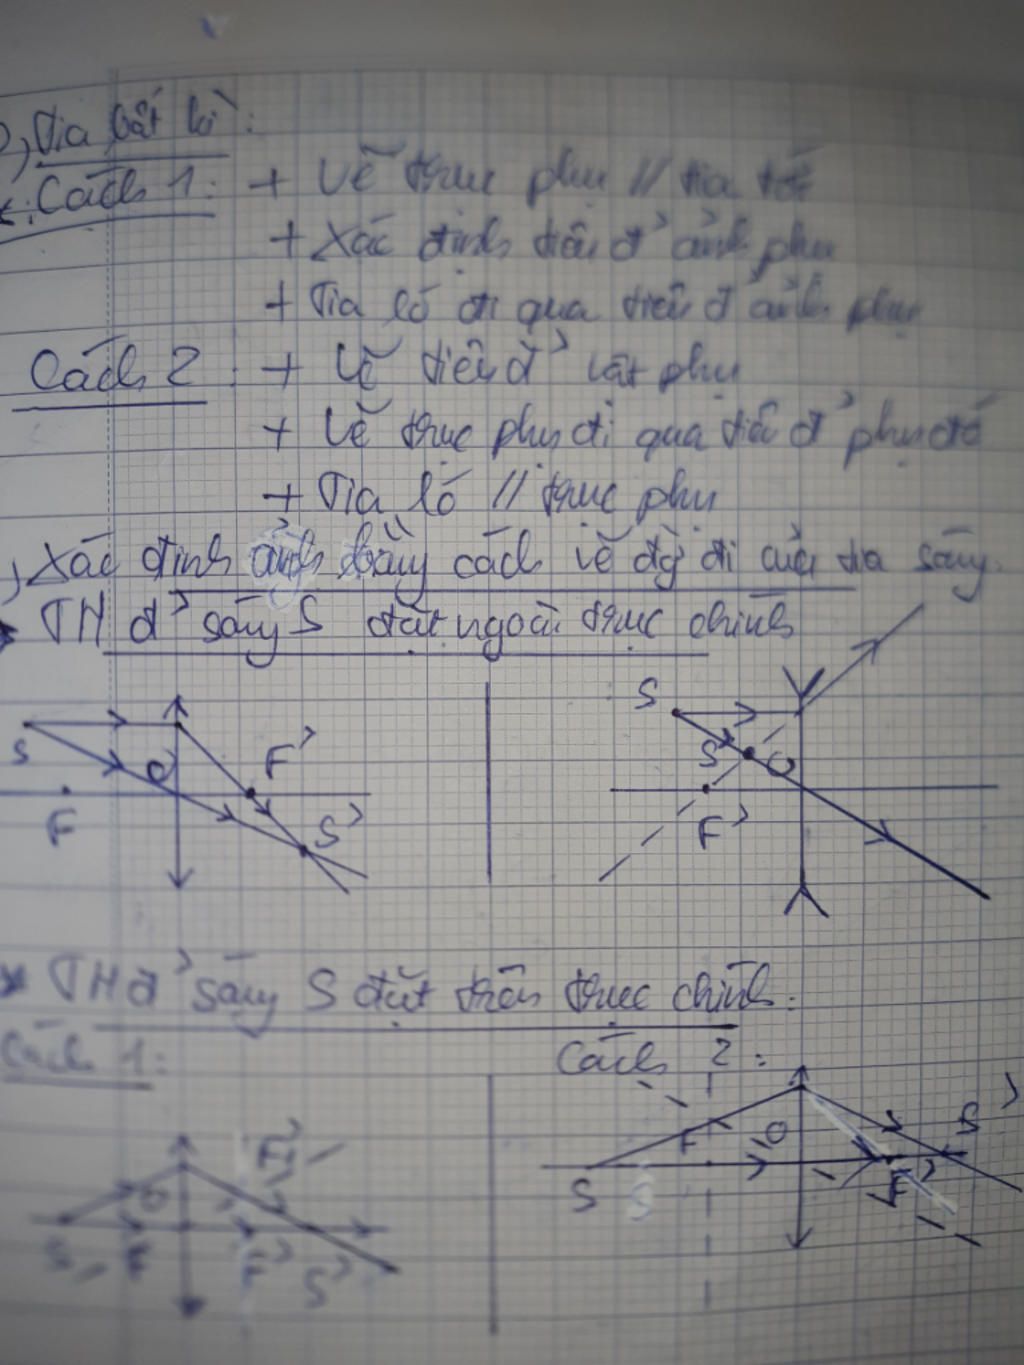 2, Tia bất kì:
*. Cách 1: + Vẽ trục phụ // tia tới
+ Xác định tiêu đ' ảnh phụ
+ Tia ló đi qua tiêu đ' ảnh phụ
Cách 2: + Vẽ tiêu đ' vật phụ
+ Vẽ trục phụ đi qua tiêu đ' phụ đó
+ Tia ló // trục phụ
, Xác định ảnh bằng cách vẽ đg đi của tia sáng.
* TH đ' sáng S đặt ngoài trục chính
S F O F' S'
S S' O F'
* TH đ' sáng S đặt trên trục chính:
Cách 1: Cách 2:
S F O F' S'
S F O F' S'